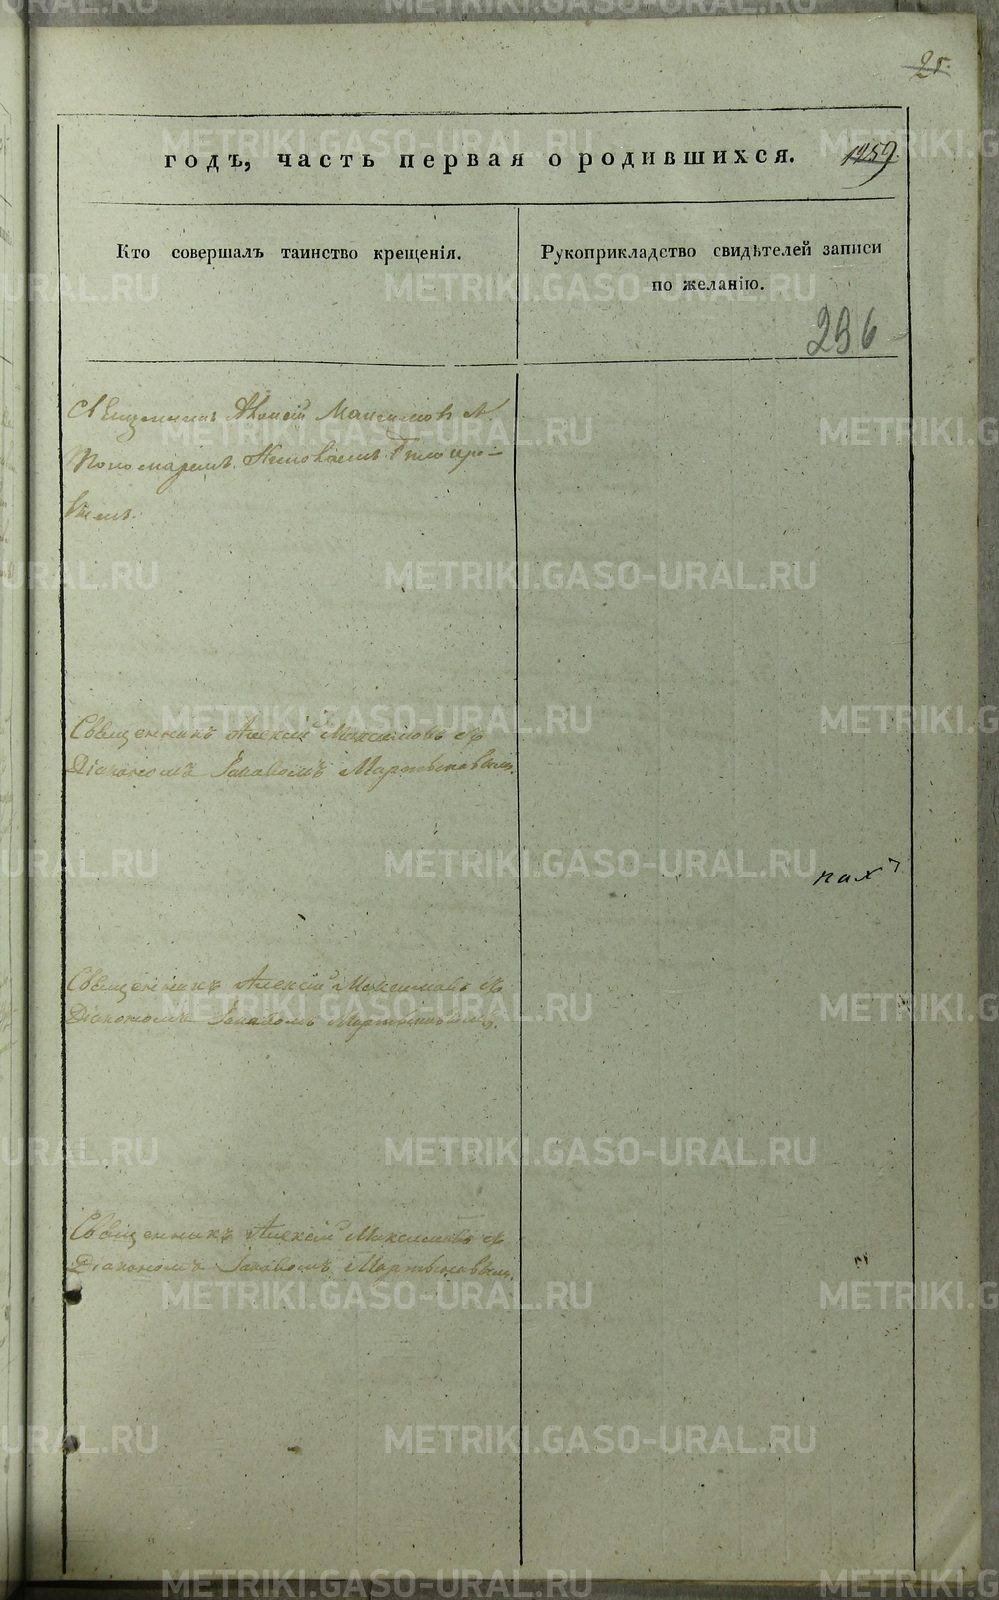 25.
годъ, часть первая о родившихся. 1259.
Кто совершалъ таинство крещенія.
Рукоприкладство свидѣтелей записи
по желанію.
236
Священникъ Алексій Максимовъ съ
Пономаремъ
Священникъ Алексій Максимовъ съ
Діакономъ Іаковомъ Мартыновымъ.
пах
Священникъ Алексій Максимовъ съ
Діакономъ Іаковомъ Мартыновымъ.
Священникъ Алексій Максимовъ съ
Діакономъ Іаковомъ Мартыновымъ.
METRIKI.GASO-URAL.RU